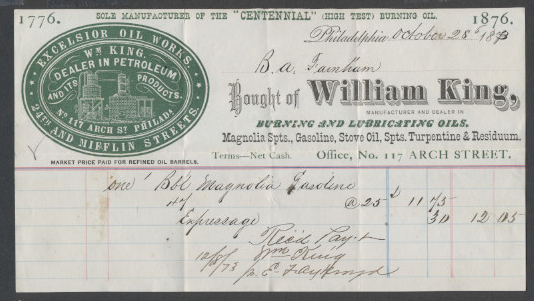 1776. SOLE MANUFACTURER OF THE "CENTENNIAL" (HIGH TEST) BURNING OIL. 1876.
EXCELSIOR OIL WORKS.
Wm KING,
DEALER IN PETROLEUM
AND ITS PRODUCTS.
No 117 ARCH ST PHILADA
24TH AND MIFFLIN STREETS.
MARKET PRICE PAID FOR REFINED OIL BARRELS.
Philadelphia October 28th 187
B. A. Farnham
Bought of William King,
MANUFACTURER AND DEALER IN
BURNING AND LUBRICATING OILS,
Magnolia Spts., Gasoline, Stove Oil, Spts. Turpentine & Residuum,
Terms—Net Cash. Office, No. 117 ARCH STREET.
One Bbl Magnolia Gasoline
47 @ 25 11 75
Expressage 30 12 05
Rec'd Payt
Wm King